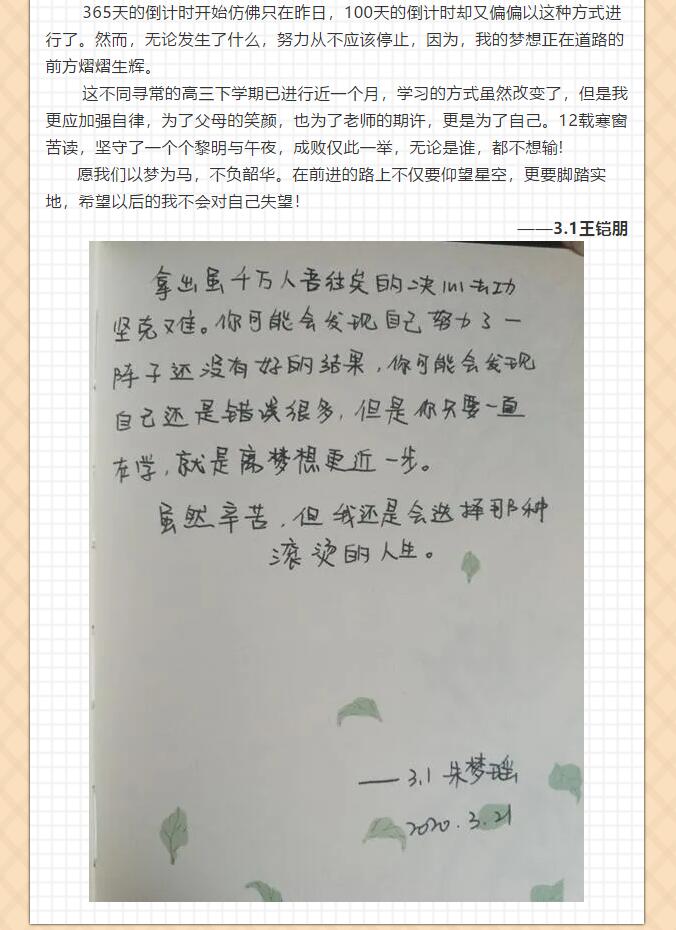 365天的倒计时开始仿佛只在昨日，100天的倒计时却又偏偏以这种方式进
行了。然而，无论发生了什么，努力从不应该停止，因为，我的梦想正在道路的
前方熠熠生辉。
这不同寻常的高三下学期已进行近一个月，学习的方式虽然改变了，但是我
更应加强自律，为了父母的笑颜，也为了老师的期许，更是为了自己。12载寒窗
苦读，坚守了一个个黎明与午夜，成败仅此一举，无论是谁，都不想输!
愿我们以梦为马，不负韶华。在前进的路上不仅要仰望星空，更要脚踏实
地，希望以后的我不会对自己失望！
——3.1王铠朋
拿出虽千万人吾往矣的决心去功
坚克难。你可能会发现自己努力了一
阵子还没有好的结果，你可能会发现
自己还是错误很多，但是你只要一直
在学，就是离梦想更近一步。
虽然辛苦，但我还是会选择那种
滚烫的人生。
——3.1 朱梦瑶
2020.3.21